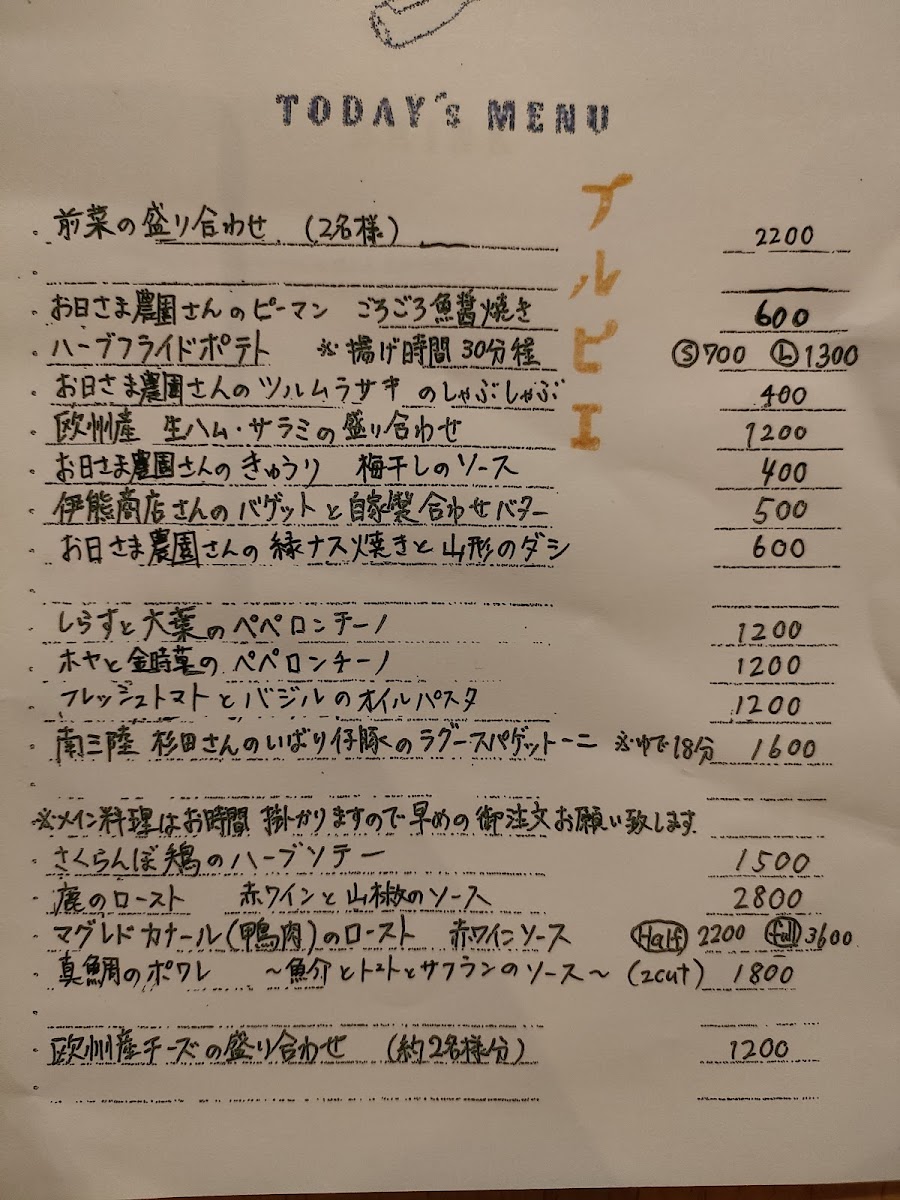 TODAY's MENU
イルピエ
前菜の盛り合わせ (2名様) 2200
お日さま農園さんのピーマン ごろごろ魚醤焼き 600
ハーブフライドポテト ※揚げ時間30分程 Ⓢ700 Ⓛ1300
お日さま農園さんのツルムラサキのしゃぶしゃぶ 400
欧州産 生ハム・サラミの盛り合わせ 1200
お日さま農園さんのきゅうり 梅干しのソース 400
伊熊商店さんのバゲットと自家製合わせバター 500
お日さま農園さんの緑ナス焼きと山形のダシ 600
しらすと大葉のペペロンチーノ 1200
ホヤと金時草のペペロンチーノ 1200
フレッシュトマトとバジルのオイルパスタ 1200
南三陸 杉田さんのいばり仔豚のラグースパゲットーニ ※ゆで18分 1600
※メイン料理はお時間掛かりますので早めの御注文お願い致します
さくらんぼ鶏のハーブソテー 1500
鹿のロースト 赤ワインと山椒のソース 2800
マグレドカナール(鴨肉)のロースト 赤ワインソース Half 2200 full 3600
真鯛のポワレ ~魚介とトマトとサフランのソース~ (2cut) 1800
欧州産チーズの盛り合わせ (約2名様分) 1200